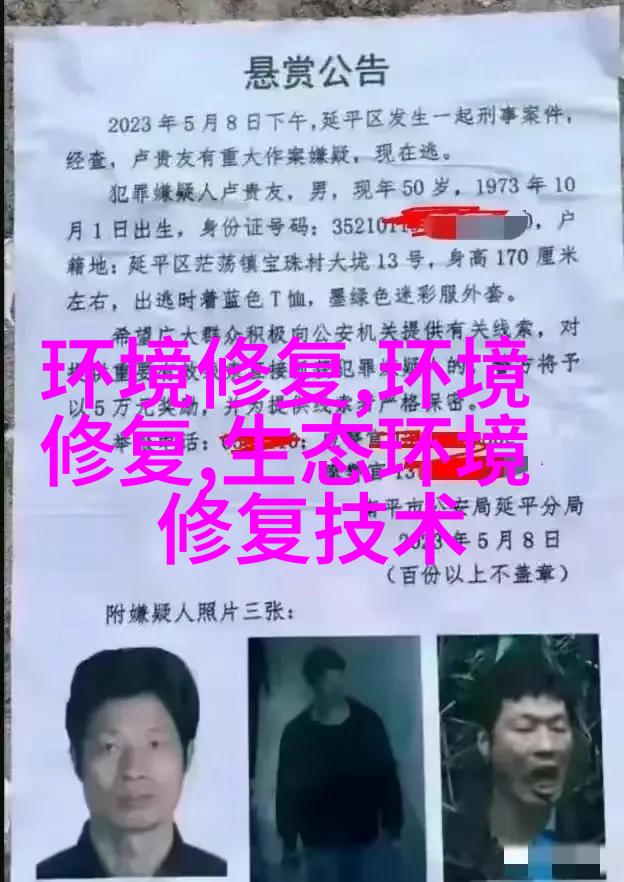 悬赏公告
2023年5月8日下午,延平区发生一起刑事案件,
经查，卢贵友有重大作案嫌疑，现在逃。
犯罪嫌疑人卢贵友，男，现年50岁，1973年10
月1日出生，身份证号码：3521011，户
籍地：延平区茫荡镇宝珠村大拢13号，身高170厘米
左右，出逃时着蓝色T恤，墨绿色迷彩服外套。
希望广大群众积极向公安机关提供有关线索，对
重要 犯罪 人的, 方将予
以5万元奖励，并为提供线索 严格保密。
举 电话：
官13
南平市公安局延平分局
2023年5月8日
（百份以上不盖章）
附嫌疑人照片三张：
环境修复,环境
修复,生态环境
修复技术